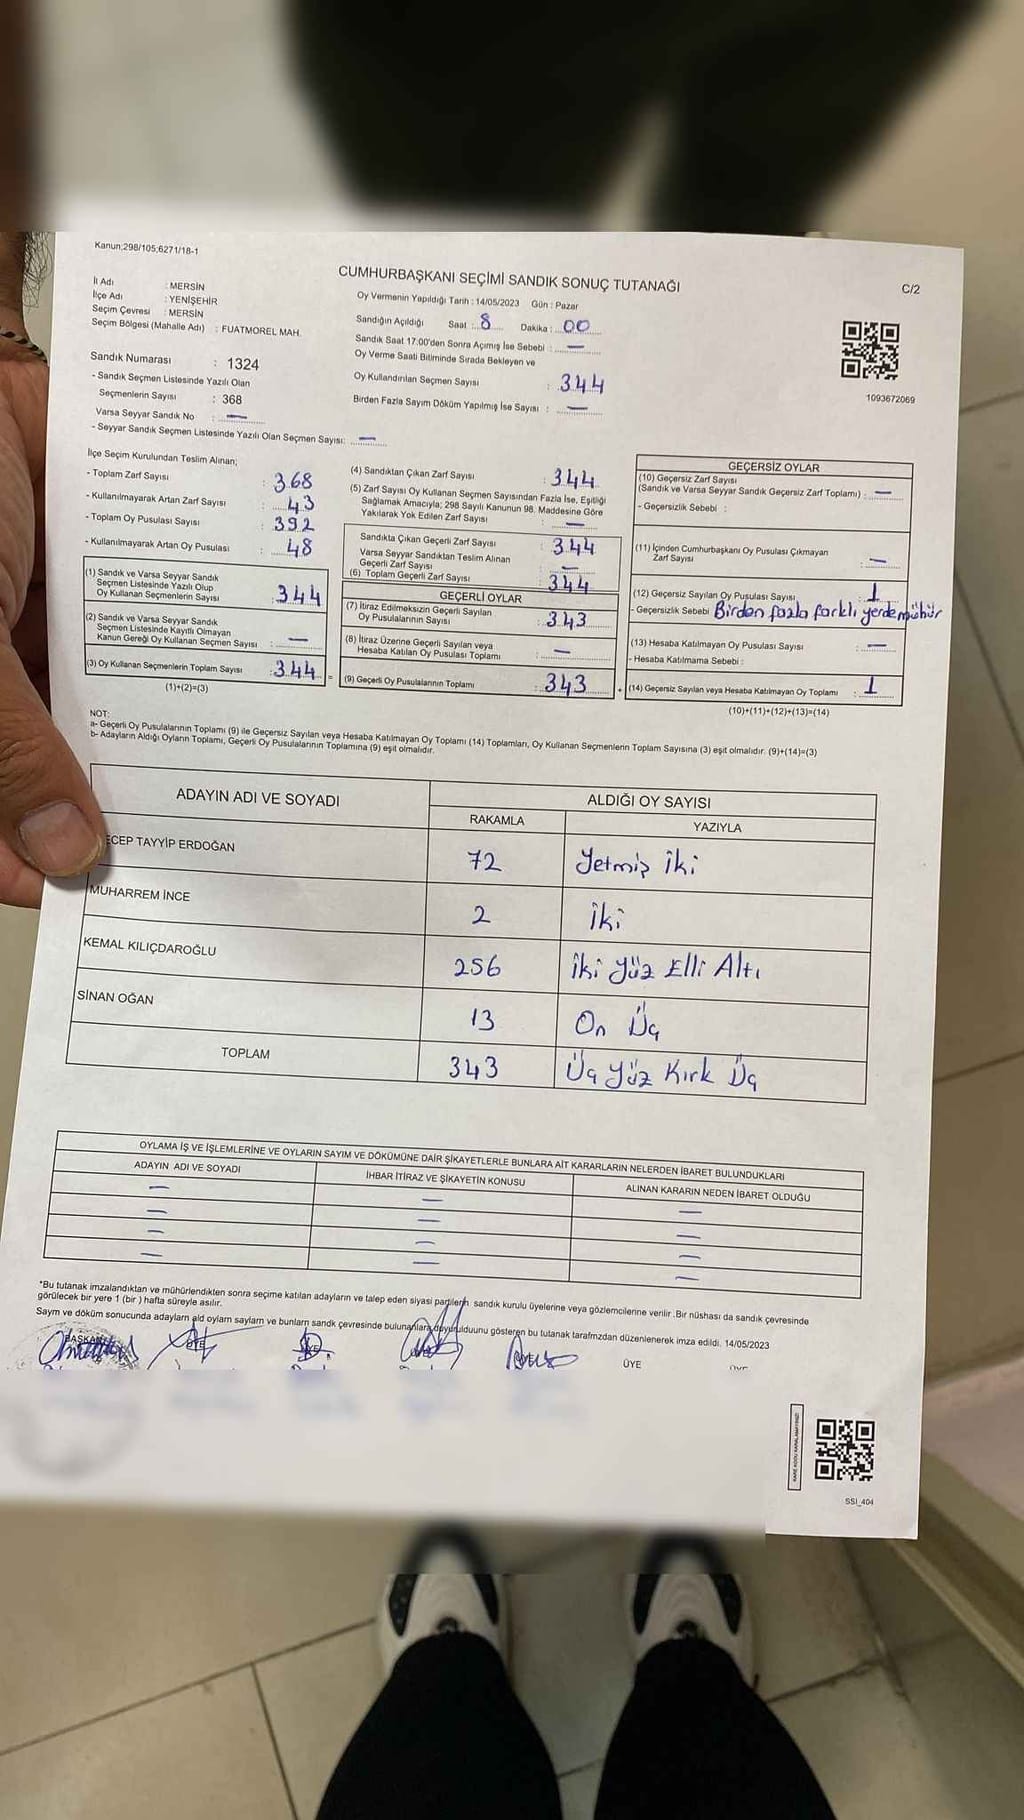 Kanun;298/105;6271/18-1
CUMHURBAŞKANI SEÇİMİ SANDIK SONUÇ TUTANAĞI
C/2
İl Adı : MERSİN
İlçe Adı : YENİŞEHİR
Seçim Çevresi : MERSİN
Seçim Bölgesi (Mahalle Adı) : FUATMOREL MAH.
Sandık Numarası : 1324
- Sandık Seçmen Listesinde Yazılı Olan
Seçmenlerin Sayısı : 368
Varsa Seyyar Sandık No : —
- Seyyar Sandık Seçmen Listesinde Yazılı Olan Seçmen Sayısı: —
Oy Vermenin Yapıldığı Tarih : 14/05/2023 Gün : Pazar
Sandığın Açıldığı Saat : 8 Dakika : 00
Sandık Saat 17:00'den Sonra Açımış İse Sebebi : —
Oy Verme Saati Bitiminde Sırada Bekleyen ve
Oy Kullandırılan Seçmen Sayısı : 344
Birden Fazla Sayım Döküm Yapılmış İse Sayısı : —
1093672069
İlçe Seçim Kurulundan Teslim Alınan;
- Toplam Zarf Sayısı : 368
- Kullanılmayarak Artan Zarf Sayısı : 43
- Toplam Oy Pusulası Sayısı : 392
- Kullanılmayarak Artan Oy Pusulası : 48
(1) Sandık ve Varsa Seyyar Sandık
Seçmen Listesinde Yazılı Olup
Oy Kullanan Seçmenlerin Sayısı : 344
(2) Sandık ve Varsa Seyyar Sandık
Seçmen Listesinde Kayıtlı Olmayan
Kanun Gereği Oy Kullanan Seçmen Sayısı : —
(3) Oy Kullanan Seçmenlerin Toplam Sayısı : 344 =
(1)+(2)=(3)
(4) Sandıktan Çıkan Zarf Sayısı : 344
(5) Zarf Sayısı Oy Kullanan Seçmen Sayısından Fazla İse, Eşitliği
Sağlamak Amacıyla; 298 Sayılı Kanunun 98. Maddesine Göre
Yakılarak Yok Edilen Zarf Sayısı : —
Sandıkta Çıkan Geçerli Zarf Sayısı : 344
Varsa Seyyar Sandıktan Teslim Alınan
Geçerli Zarf Sayısı : —
(6) Toplam Geçerli Zarf Sayısı : 344
GEÇERLİ OYLAR
(7) İtiraz Edilmeksizin Geçerli Sayılan
Oy Pusulasının Sayısı : 343
(8) İtiraz Üzerine Geçerli Sayılan veya
Hesaba Katılan Oy Pusulası Toplamı : —
(9) Geçerli Oy Pusulalarının Toplamı : 343 +
GEÇERSİZ OYLAR
(10) Geçersiz Zarf Sayısı
(Sandık ve Varsa Seyyar Sandık Geçersiz Zarf Toplamı) : —
- Geçersizlik Sebebi :
(11) İçinden Cumhurbaşkanı Oy Pusulası Çıkmayan
Zarf Sayısı : —
(12) Geçersiz Sayılan Oy Pusulası Sayısı : 1
- Geçersizlik Sebebi Birden fazla farklı yerde mühür
(13) Hesaba Katılmayan Oy Pusulası Sayısı : —
- Hesaba Katılmama Sebebi :
(14) Geçersiz Sayılan veya Hesaba Katılmayan Oy Toplamı : 1
(10)+(11)+(12)+(13)=(14)
NOT:
a- Geçerli Oy Pusulalarının Toplamı (9) ile Geçersiz Sayılan veya Hesaba Katılmayan Oy Toplamı (14) Toplamları, Oy Kullanan Seçmenlerin Toplam Sayısına (3) eşit olmalıdır. (9)+(14)=(3)
b- Adayların Aldığı Oyların Toplamı, Geçerli Oy Pusulalarının Toplamına (9) eşit olmalıdır.
ADAYIN ADI VE SOYADI ALDIĞI OY SAYISI
RAKAMLA YAZIYLA
ECEP TAYYİP ERDOĞAN 72 Yetmiş İki
MUHARREM İNCE 2 İki
KEMAL KILIÇDAROĞLU 256 İki Yüz Elli Altı
SİNAN OĞAN 13 On Üç
TOPLAM 343 Üç Yüz Kırk Üç
OYLAMA İŞ VE İŞLEMLERİNE VE OYLARIN SAYIM VE DÖKÜMÜNE DAİR ŞİKAYETLERLE BUNLARA AİT KARARLARIN NELERDEN İBARET BULUNDUKLARI
ADAYIN ADI VE SOYADI İHBAR İTİRAZ VE ŞİKAYETİN KONUSU ALINAN KARARIN NEDEN İBARET OLDUĞU
— — —
— — —
— — —
— — —
*Bu tutanak imzalandıktan ve mühürlendikten sonra seçime katılan adayların ve talep eden siyasi partilerin sandık kurulu üyelerine veya gözlemcilerine verilir .Bir nüshası da sandık çevresinde
görülecek bir yere 1 (bir ) hafta süreyle asılır.
Sayım ve döküm sonucunda adayların ald oyların sayıları ve bunların sandk çevresinde bulunanlara duyurulduunu gösteren bu tutanak tarafmzdan düzenlenerek imza edildi. 14/05/2023
BAŞKAN ÜYE ÜYE ÜYE ÜYE ÜYE
SSI_404